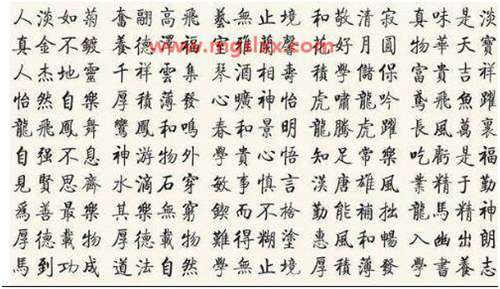 人淡如菊 奮翮高飛 藝無止境 和敬清寂 真味是淡
真金不鍍 養德澤福 蘭馨 好月圓 物華天寶
人杰地靈 千祥雲集 琴酒相壽 積學儲保 富貴吉祥
怡然自樂 厚積薄發 心曠神怡 虎嘯龍吟 鳶飛魚躍
龍飛鳳舞 鸞鳳和鳴 春和景明 龍騰虎躍 長風萬裏
自强不息 神游物外 學貴心悟 知足常樂 吃虧是福
見賢思齊 水滴石穿 敏事慎言 漢唐雄風 業精于勤
爲善最樂 其樂無窮 鍥而不捨 勤能補拙 龍馬精神
厚德載物 厚德載物 難得糊塗 惠風和暢 入幽出朗
馬到功成 道法自然 學無止境 厚積薄發 學書養志